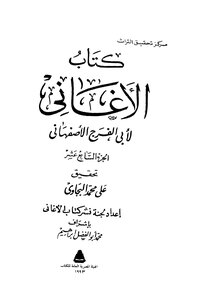 مركز تحقيق التراث
كتاب
الأغاني
لأبى الفرج الأصفهانى
الجزء السابع عشر
تحقيق
على محمد البجاوى
إعداد لجنة نشر كتاب الأغانى
بإشراف
محمد أبو الفضل إبراهيم
الهيئة المصرية العامة للكتاب
١٩٩٣